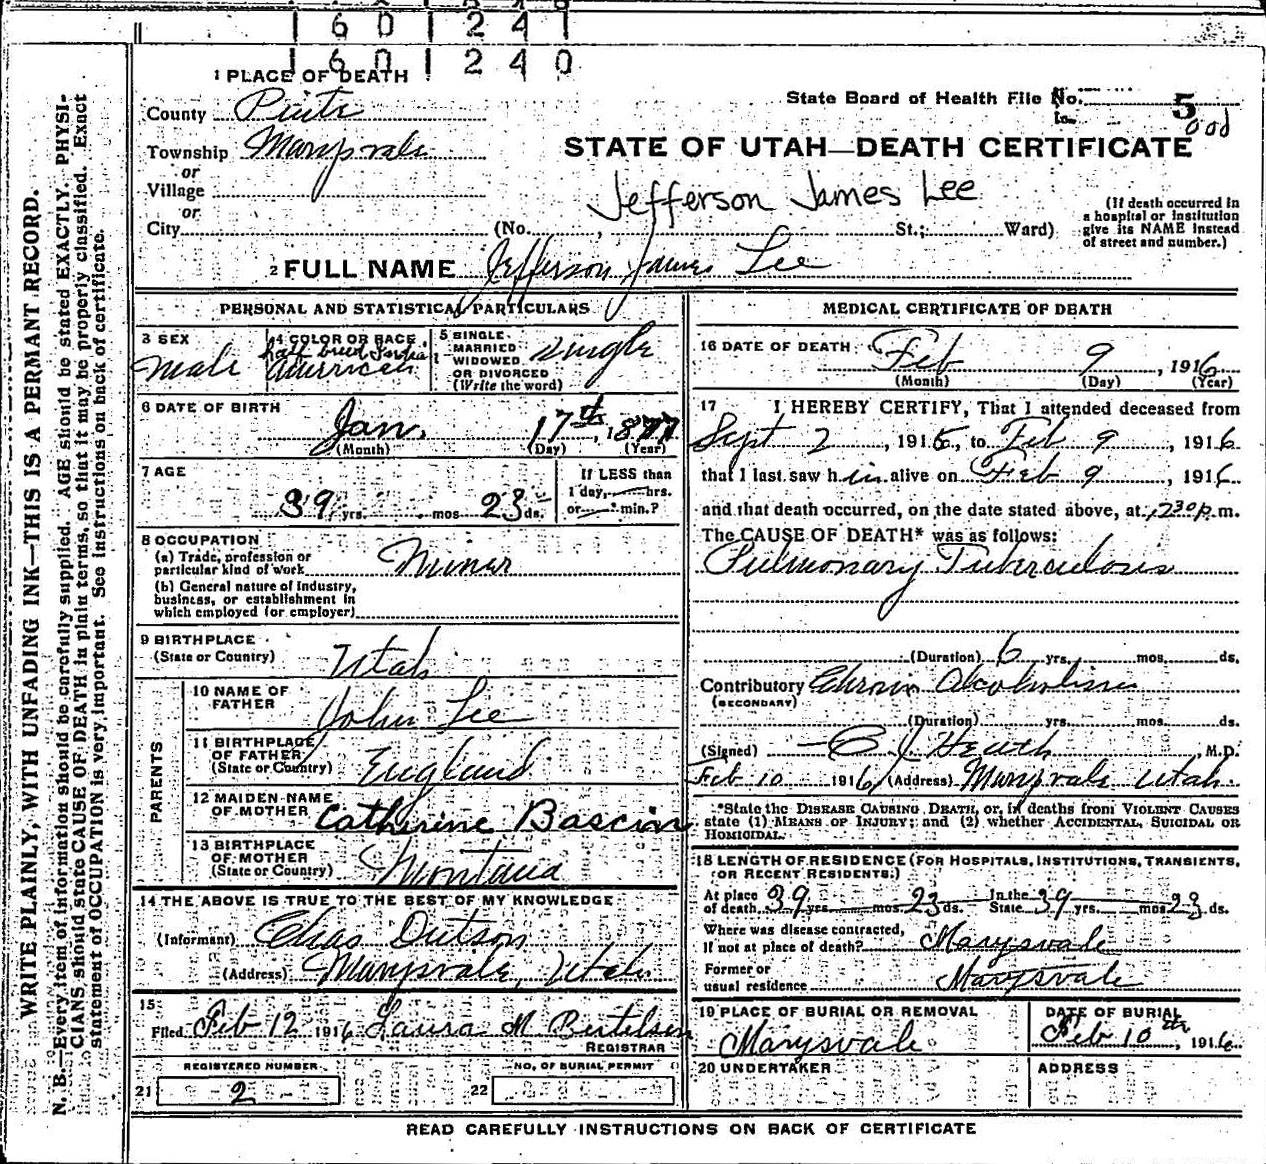 1 6 0 1 2 4 0
1 6 0 1 2 4 0
1 PLACE OF DEATH
County Piute
Township Marysvale
or
Village
or
City (No. , St.; Ward)
State Board of Health File No. 5
STATE OF UTAH—DEATH CERTIFICATE
Jefferson James Lee
(If death occurred in
a hospital or institution
give its NAME instead
of street and number.)
2 FULL NAME Jefferson James Lee
PERSONAL AND STATISTICAL PARTICULARS
3 SEX Male
4 COLOR OR RACE half breed Indian American
5 SINGLE MARRIED WIDOWED OR DIVORCED (Write the word) Single
6 DATE OF BIRTH
Jan. 17th, 1877
(Month) (Day) (Year)
7 AGE
39 yrs. mos 23 ds.
If LESS than
1 day, hrs.
or min.?
8 OCCUPATION
(a) Trade, profession or
particular kind of work Miner
(b) General nature of industry,
business, or establishment in
which employed (or employer)
9 BIRTHPLACE
(State or Country) Utah
PARENTS
10 NAME OF
FATHER John Lee
11 BIRTHPLACE
OF FATHER
(State or Country) England
12 MAIDEN NAME
OF MOTHER Catherine Bascom
13 BIRTHPLACE
OF MOTHER
(State or Country) Montana
14 THE ABOVE IS TRUE TO THE BEST OF MY KNOWLEDGE
(Informant) Chas Dutson
(Address) Marysvale, Utah
15
Filed Feb 12 1916 Laura M Bertelsen
REGISTRAR
REGISTERED NUMBER
21 2
NO. OF BURIAL PERMIT
22
MEDICAL CERTIFICATE OF DEATH
16 DATE OF DEATH
Feb 9, 1916
(Month) (Day) (Year)
17 I HEREBY CERTIFY, That I attended deceased from
Sept 2, 1915, to Feb 9, 1916
that I last saw him alive on Feb 9, 1916
and that death occurred, on the date stated above, at 1230 P.m.
The CAUSE OF DEATH* was as follows:
Pulmonary Tuberculosis
(Duration) 6 yrs. mos. ds.
Contributory Chronic Alcoholism
(SECONDARY)
(Duration) yrs. mos. ds.
(Signed) Heath, M.D.
Feb 10 1916 (Address) Marysvale Utah
*State the DISEASE CAUSING DEATH, or, in deaths from VIOLENT CAUSES
state (1) MEANS OF INJURY; and (2) whether ACCIDENTAL, SUICIDAL OR
HOMICIDAL.
18 LENGTH OF RESIDENCE (FOR HOSPITALS, INSTITUTIONS, TRANSIENTS,
OR RECENT RESIDENTS.)
At place of death 39 yrs. mos. 23 ds. In the State 39 yrs. mos 23 ds.
Where was disease contracted,
If not at place of death? Marysvale
Former or
usual residence Marysvale
19 PLACE OF BURIAL OR REMOVAL
Marysvale
DATE OF BURIAL
Feb 10th, 1916
20 UNDERTAKER
ADDRESS
READ CAREFULLY INSTRUCTIONS ON BACK OF CERTIFICATE
WRITE PLAINLY, WITH UNFADING INK—THIS IS A PERMANT RECORD.
N. B.—Every item of information should be carefully supplied. AGE should be stated EXACTLY. PHYSI-
CIANS should state CAUSE OF DEATH in plain terms, so that it may be properly classified. Exact
statement of OCCUPATION is very important. See instructions on back of certificate.